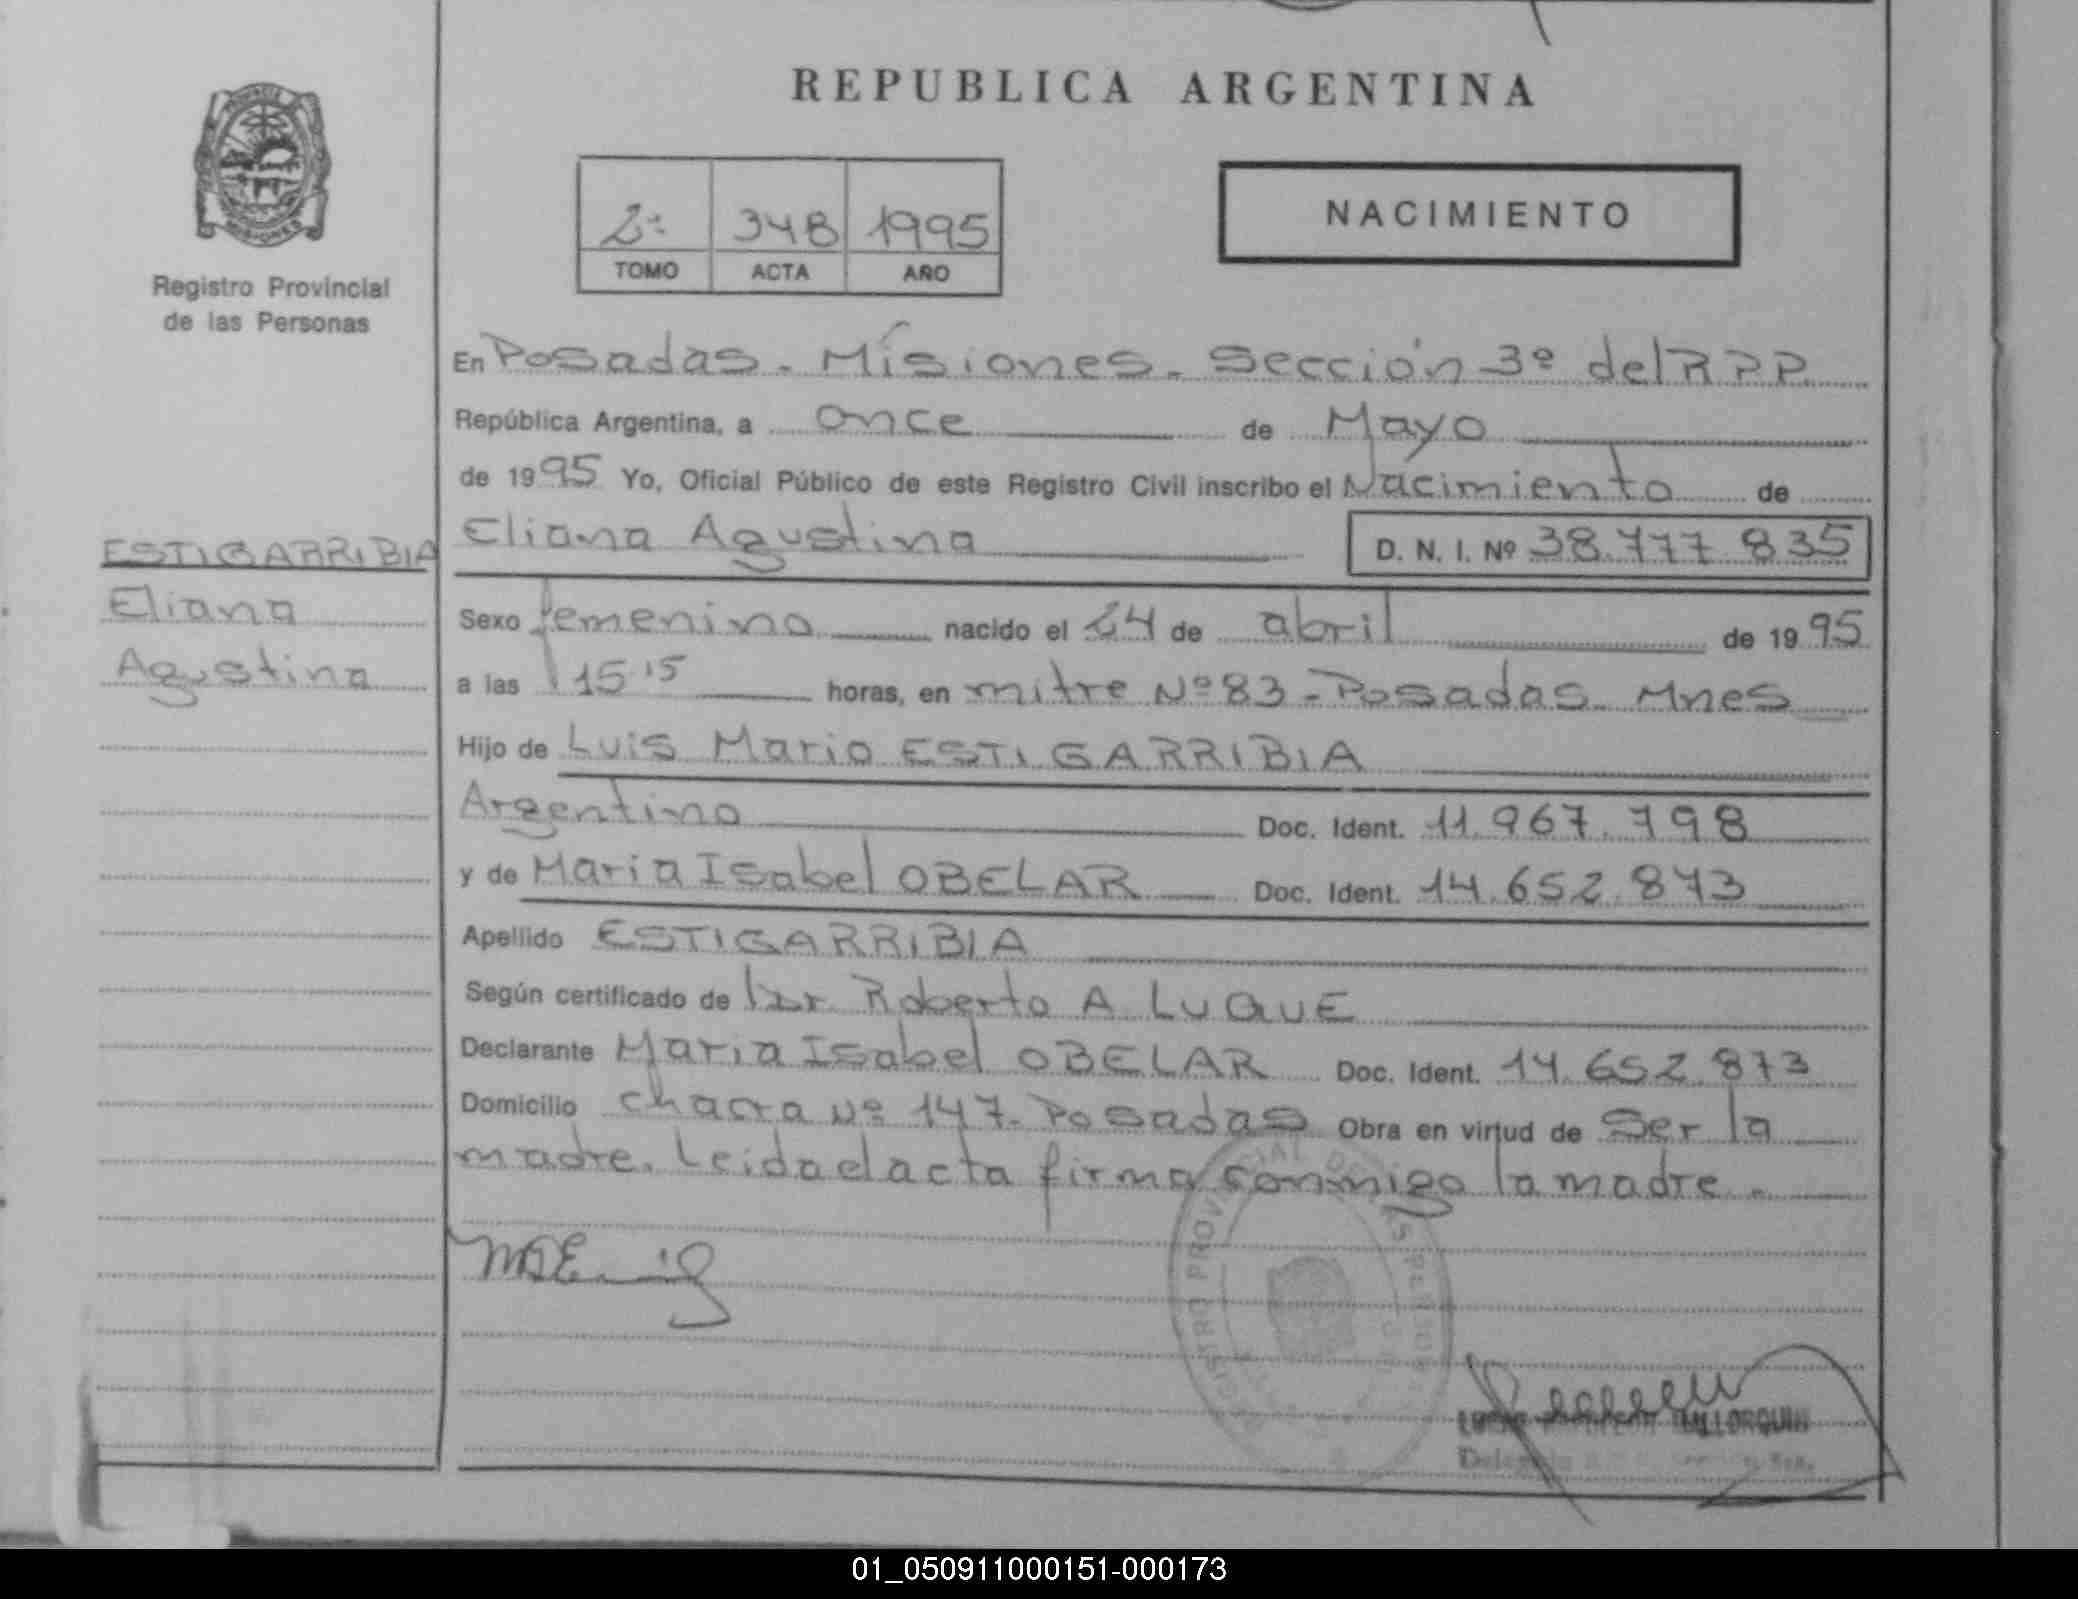 REPUBLICA ARGENTINA
PROVINCIA
MISIONES
Registro Provincial
de las Personas
2º 348 1995
TOMO ACTA AÑO
NACIMIENTO
ESTIGARRIBIA
Eliana
Agustina
En Posadas - Misiones - Sección 3º del R P P.
República Argentina, a once de Mayo
de 1995 Yo, Oficial Público de este Registro Civil inscribo el Nacimiento de
Eliana Agustina D. N. I. Nº 38.777.835
Sexo femenino nacido el 24 de abril de 1995
a las 15.15 horas, en mitre Nº 83 - Posadas - Mnes
Hijo de Luis Mario ESTIGARRIBIA
Argentino Doc. Ident. 11.967.798
y de Maria Isabel OBELAR Doc. Ident. 14.652.873
Apellido ESTIGARRIBIA
Según certificado de Dr. Roberto A LUQUE
Declarante Maria Isabel OBELAR Doc. Ident. 14.652.873
Domicilio chacra Nº 147 - Posadas Obra en virtud de Ser la
madre. Leida el acta firma conmigo la madre.
01_050911000151-000173